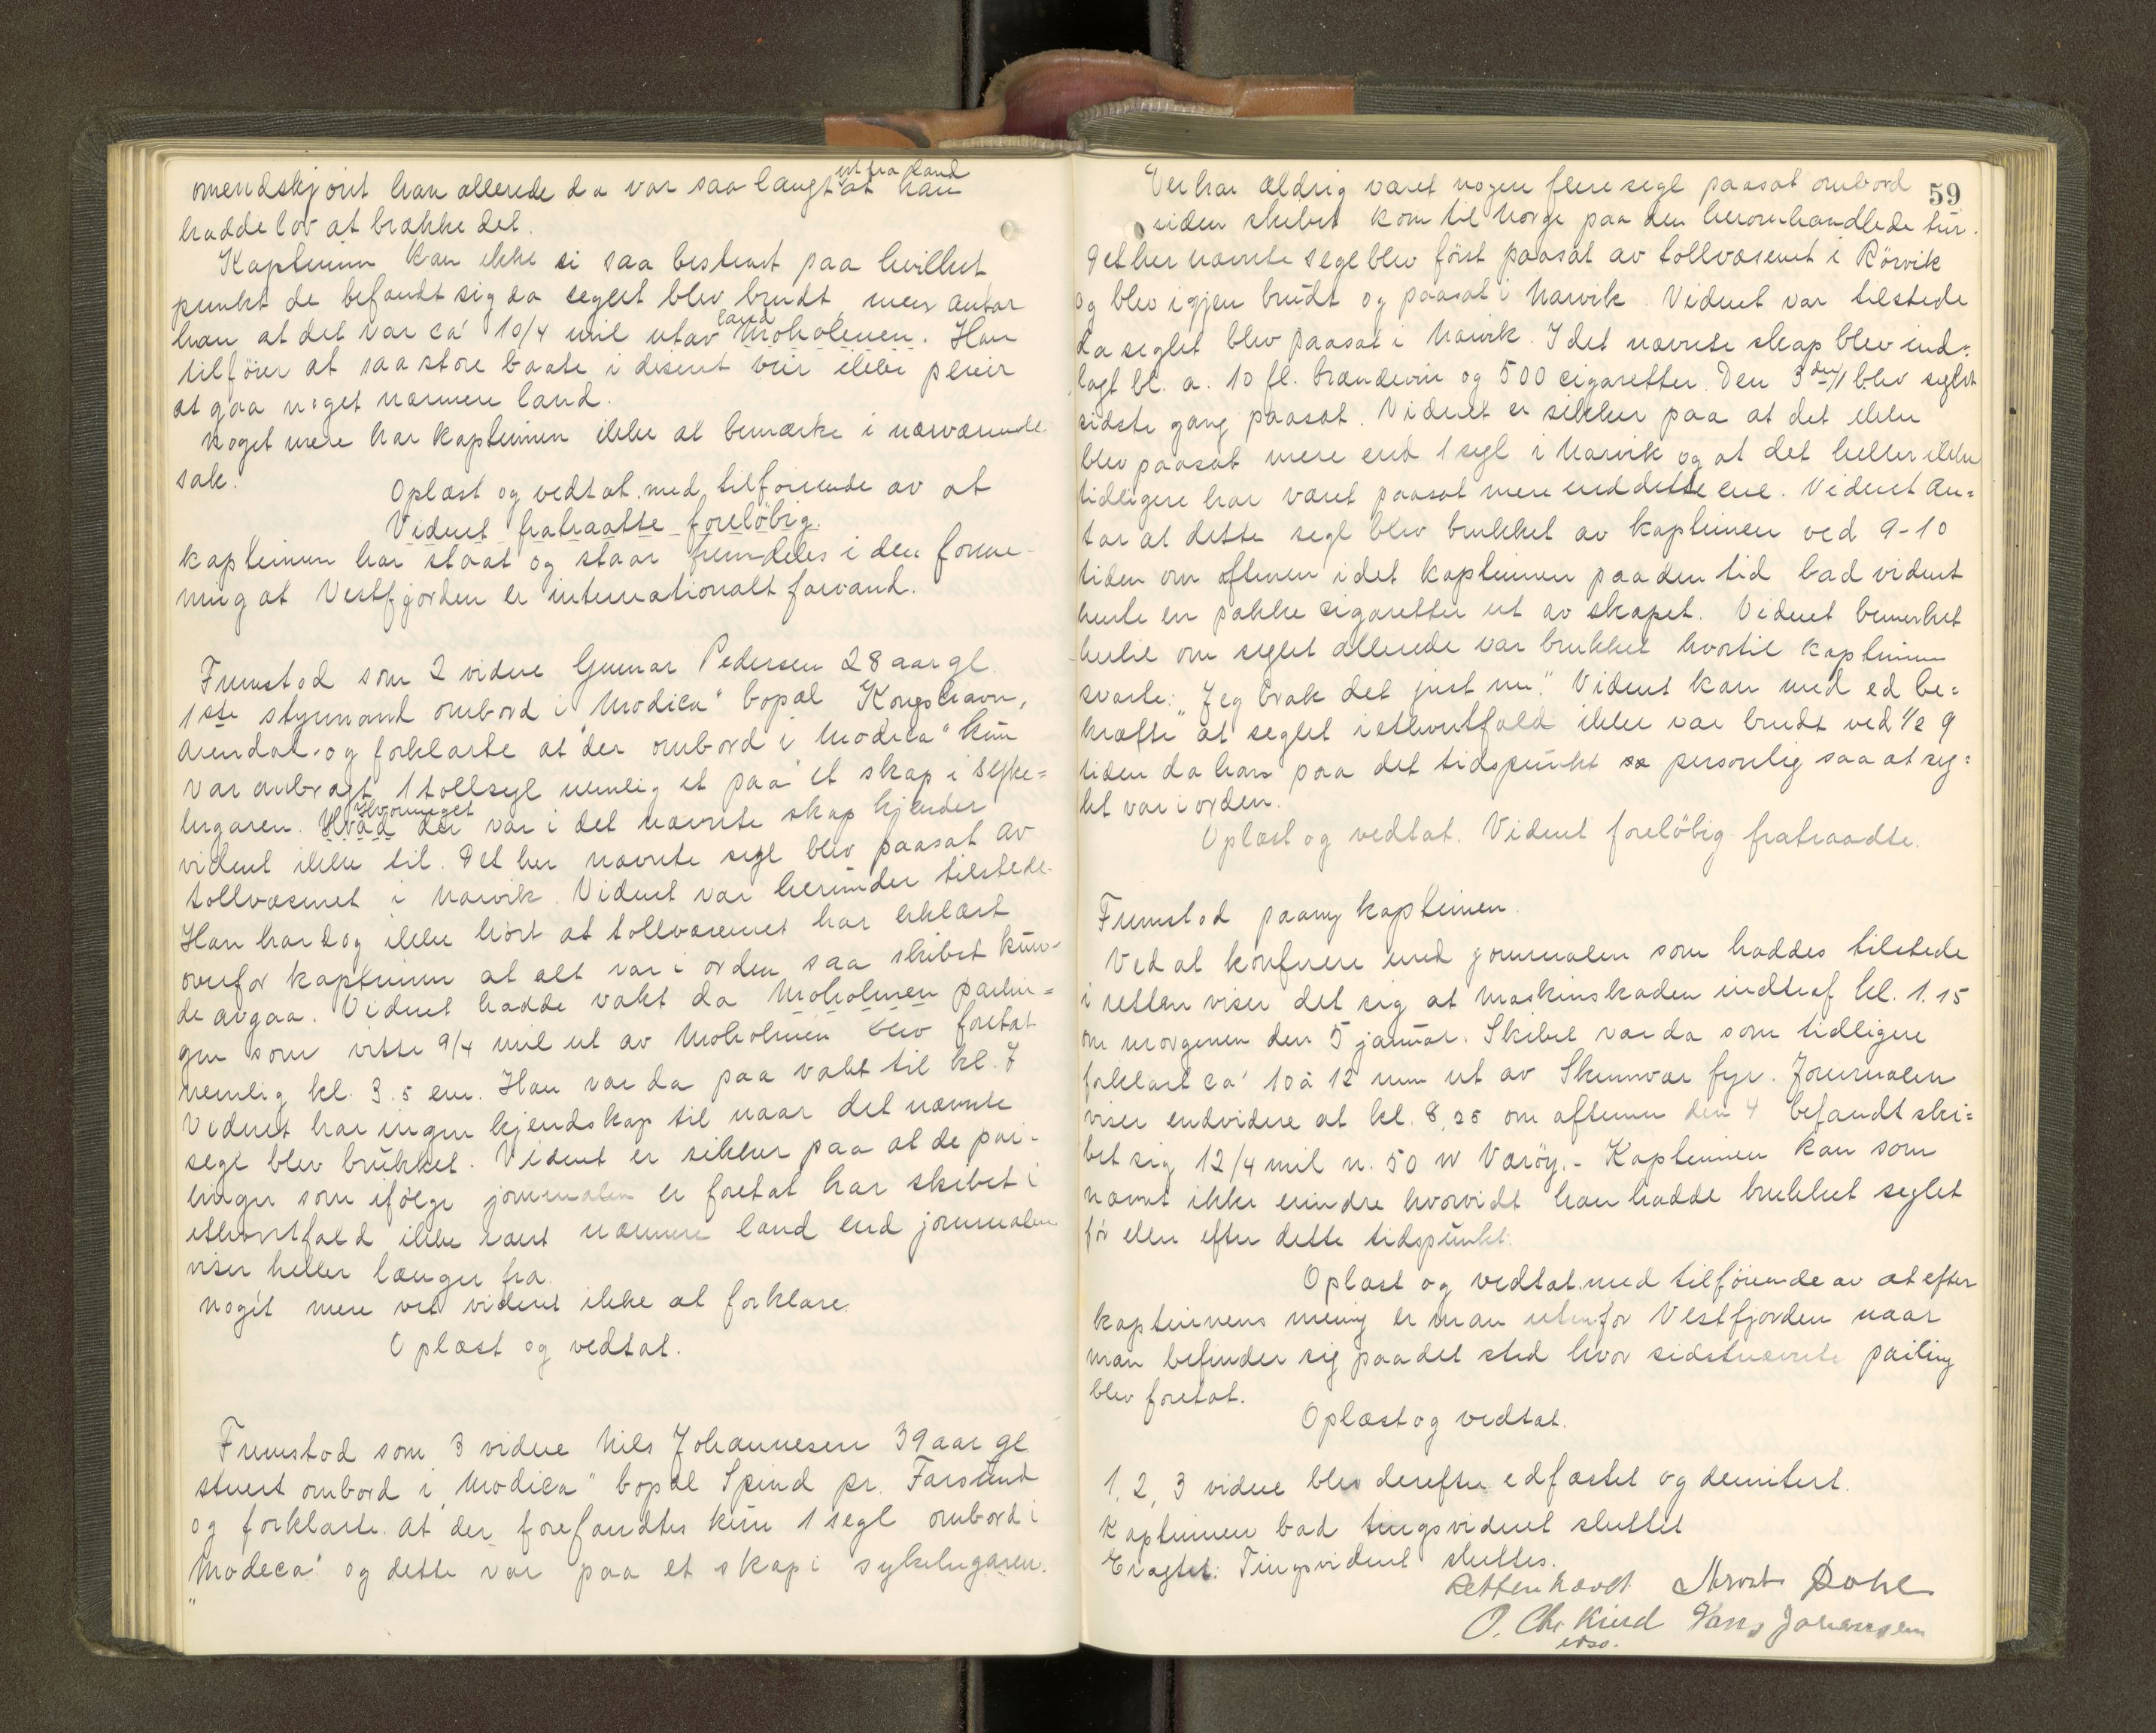 omendskjönt han allerede da var saa langt ut fra land at han
hadde lov at brække det.
Kapteinen kan ikke si saa bestemt paa hvilket
punkt de befandt sig da seglet blev brudt men antar
han at det var ca' 10/4 mil utav land Moholmen. Han
tilföier at saa store baate i disent veir ikke pleier
at gaa noget nærmere land.
Noget mere har kapteinen ikke at bemærke i nærværende
sak.
Oplæst og vedtat med tilföiende av at
Vidnet fratraatte foreløbig.
kapteinen har staat og staar fremdeles i den forme-
ning at Vestfjorden er internationalt farvand.
Fremstod som 2 vidne Gunnar Pedersen 28 aar gl.
1ste styrmand ombord i "Modica" bopæl Kongshavn,
Arendal og forklarte at der ombord i "Modica" kun
var anbragt 1 tollsegl nemlig et paa et skap i syke=
lugaren. Hvad Hvormeget der var i det nævnte skap kjender
vidnet ikke til. Det her nævnte segl blev paasat av
tollvæsenet i Narvik. Vidnet var herunder tilstede.
Han har dog ikke hört at tollvæsenet har erklært
overfor kapteinen at alt var i orden saa skibet kun-
de avgaa. Vidnet hadde vakt da Moholmen peilin=
gen som viste 9/4 mil ut av Moholmen blev foretat
nemlig kl. 3.5 em. Han var da paa vakt til kl. 7
Vidnet har ingen kjendskap til naar det nævnte
segl blev brukket. Vidnet er sikker paa at de pei-
linger som ifölge journalen er foretat har skibet i
ethvertfald ikke været nærmere land end journalen
viser heller længer fra.
Noget mere vet vidnet ikke at forklare.
Oplæst og vedtat.
Fremstod som 3 vidne Nils Johannesen 39 aar gl
stuert ombord i "Modica" bopæl Spind pr. Farsund
og forklarte at der forefandtes kun 1 segl ombord i
"Modeca" og dette var paa et skap i sykelugaren.
59
Der har aldrig været nogen flere segl paasat ombord
siden skibet kom til Norge paa den heromhandlede tur.
Det her nævnte segl blev först paasat av tollvæsenet i Rörvik
og blev igjen brudt og paasat i Narvik. Vidnet var tilstede
da seglet blev paasat i Narvik. I det nævnte skap blev ind=
lagt bl. a. 10 fl. brændevin og 500 cigaretter. Den 3den/1 blev seglet
sidste gang paasat. Vidnet er sikker paa at det ikke
blev paasat mere end 1 segl i Narvik og at det heller ikke
tidligere har været paasat mere end dette ene. Vidnet an=
tar at dette segl blev brukket av kapteinen ved 9-10
tiden om aftenen idet kapteinen paa den tid bad vidnet
hente en pakke cigaretter ut av skapet. Vidnet bemerket
hertil om seglet allerede var brukket hvortil kapteinen
svarte: "Jeg brak det just nu." Vidnet kan med ed be=
kræfte at seglet i ethvertfald ikke var brudt ved 1/2 9
tiden da han paa det tidspunkt sa personlig saa at seg=
let var i orden.
Oplæst og vedtat. Vidnet foreløbig fratraadte.
Fremstod paany kapteinen.
Ved at konferere med journalen som haddes tilstede
i retten viser det sig at maskinskaden indtraf kl. 1.15
om morgenen den 5 januar. Skibet var da som tidligere
forklart ca' 10 à 12 mm ut av Skumvær fyr. Journalen
viser endvidere at kl. 8,25 om aftenen den 4 befandt ski=
bet sig 12/4 mil n. 50 W Værøy.- Kapteinen kan som
nævnt ikke erindre hvorvidt han hadde brukket seglet
før eller efter dette tidspunkt.
Oplæst og vedtat med tilföiende av at efter
kapteinens mening er man utenfor Vestfjorden naar
man befinder sig paa det sted hvor sidstnævnte peiling
blev foretat.
Oplæst og vedtat.
1, 2, 3 vidne blev derefter edfæstet og demitert.
Kapteinen bad tingsvidnet sluttet
Eragtet: Tingsvidnet sluttes.
Retten hævet. Dahl
O. Chr. Hans Johansen